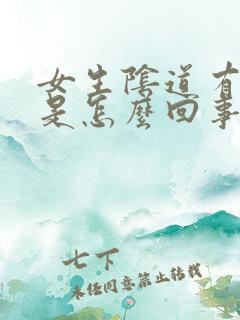 女生陰道有
是怎麼回事
七下
未經同意禁止轉載